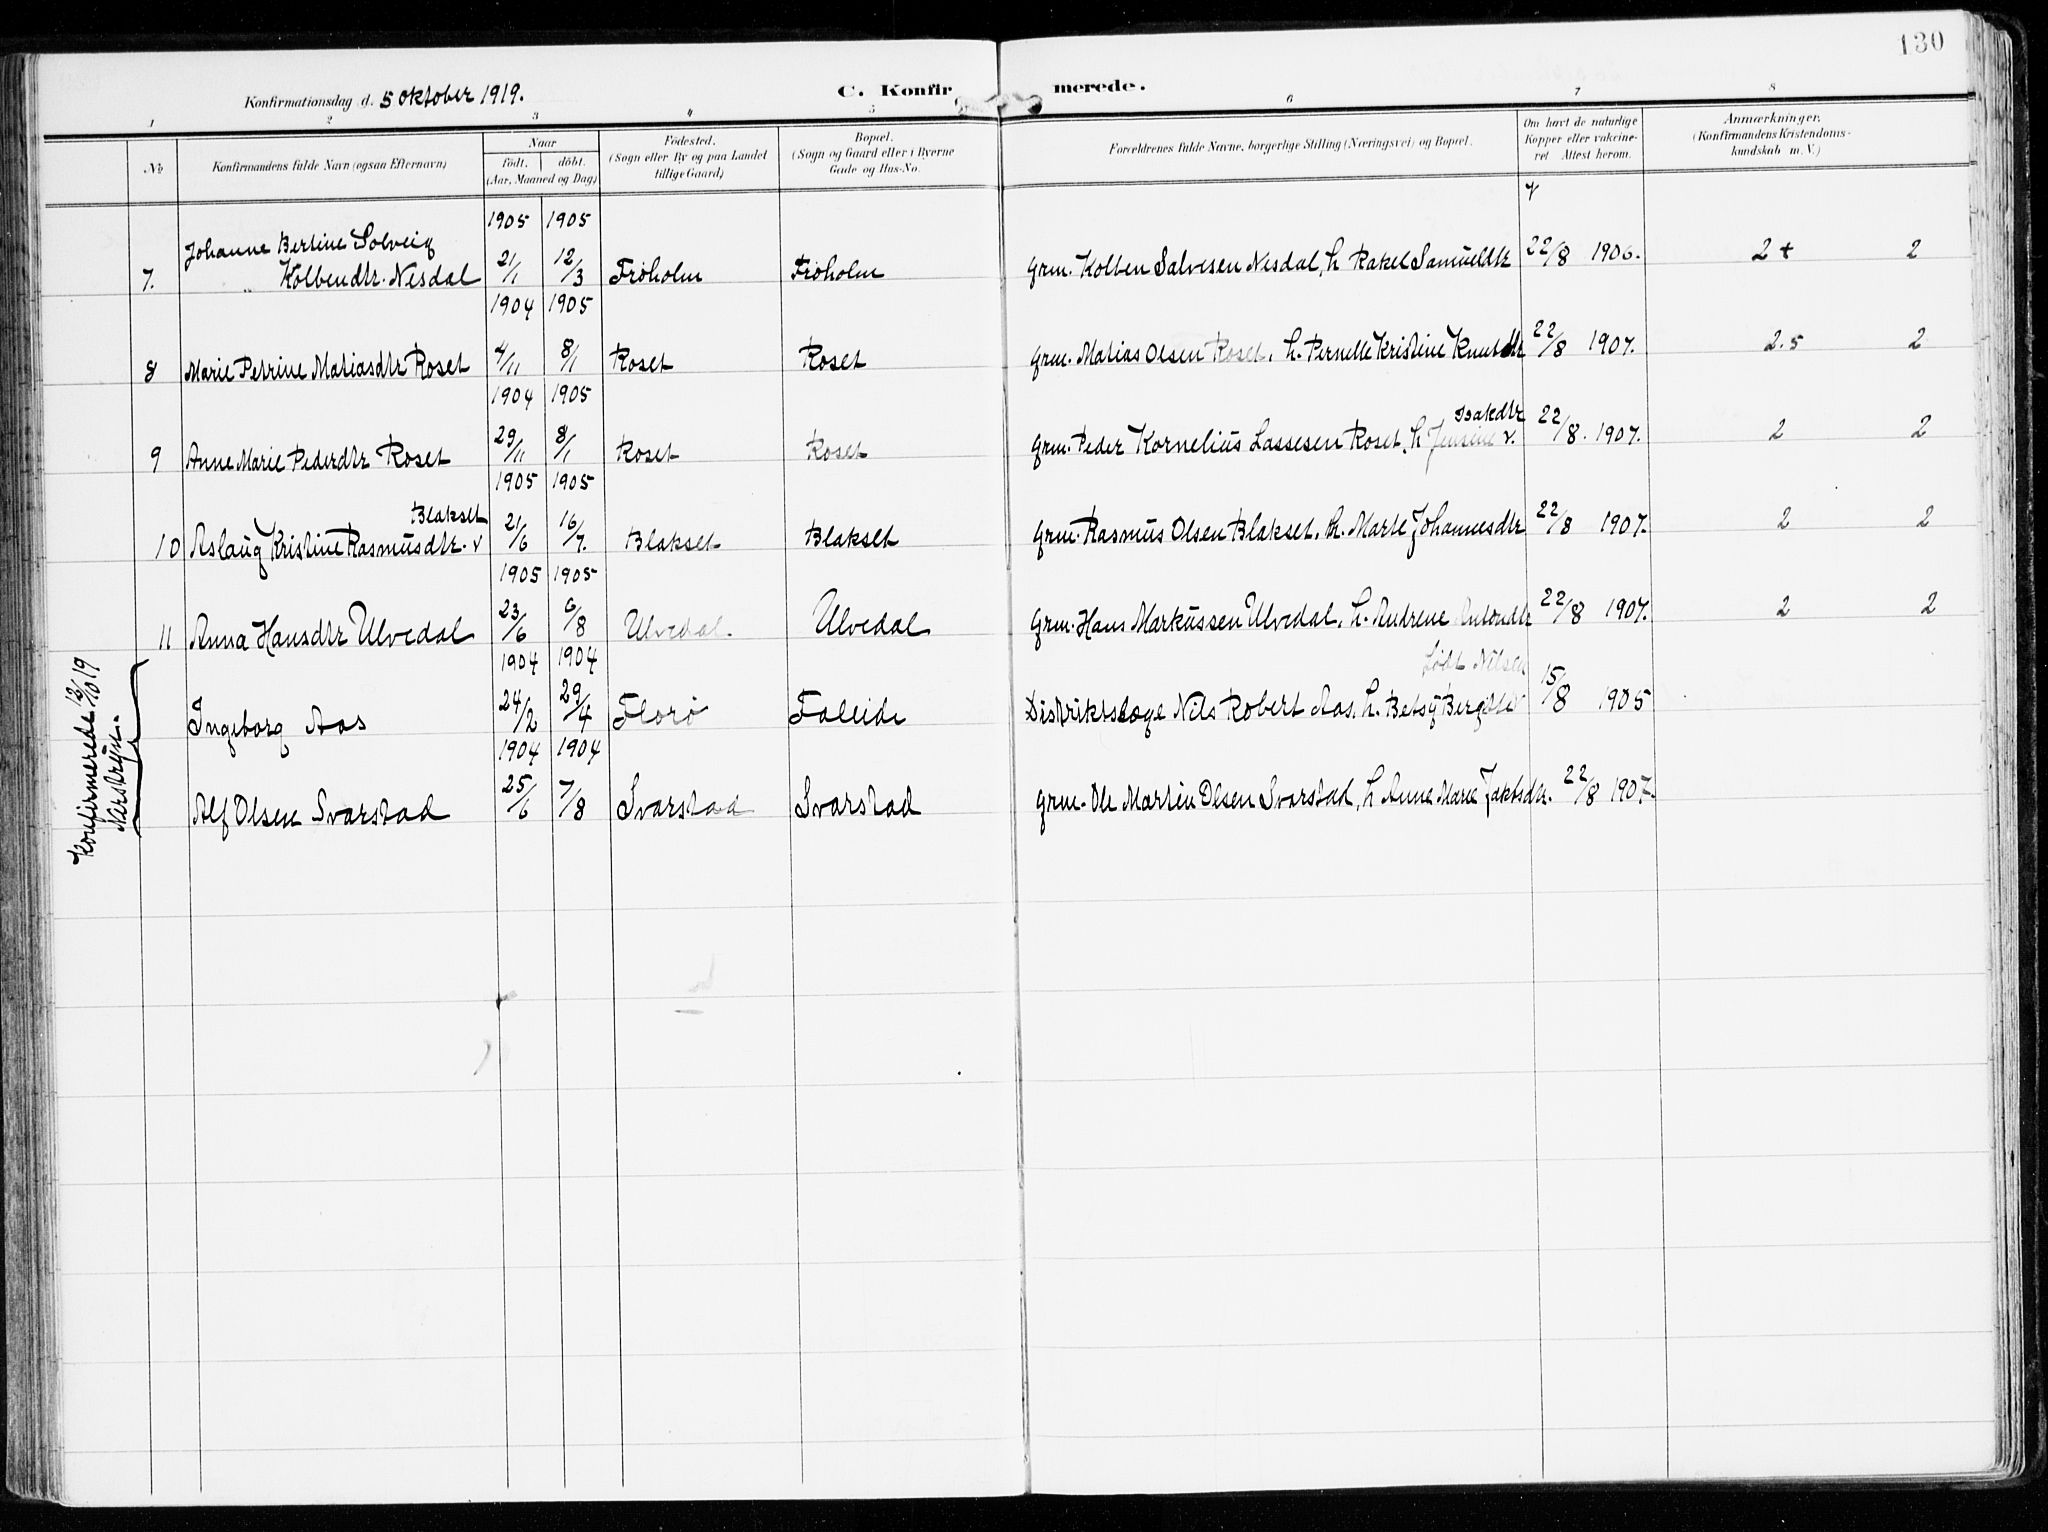 130
Konfirmationsdag d. 5 oktober 1919.
C. Konfirmerede.
1 2 3 4 5 6 7 8
№
Konfirmandens fulde Navn (ogsaa Efternavn)
Naar
födt. döbt.
(Aar, Maaned og Dag)
Födested.
(Sogn eller By og paa Landet
tillige Gaard)
Bopæl.
(Sogn og Gaard eller i Byerne
Gade og Hus-No.
Forældrenes fulde Navne, borgerlige Stilling (Næringsvei) og Bopæl.
Om havt de naturlige
Kopper eller vakcine-
ret Attest herom.
Anmærkninger.
(Konfirmandens Kristendoms-
kundskab m. V.)
1905 1905
Johanne Bertine Solveig
7. Kolbendtr. Nesdal 21/1 12/3 Frøholm Frøholm Grm. Kolben Salvesen Nesdal, h. Rakel Samueldtr 22/8 1906. 2+ 2
1904 1905
8 Marie Petrine Matiasdtr Roset 4/11 8/1 Roset Roset Grm. Matias Olsen Roset, h. Pernelle Kristine Knutdtr 22/8 1907. 2.5 2
1904 1905
Isakdtr
9 Anne Marie Pederdtr Roset 29/11 8/1 Roset Roset Grm. Peder Kornelius Lassesen Roset, h Jensine v. 22/8. 1907. 2 2
1905 1905
Blakset
10 Aslaug Kristine Rasmusdtr. v 21/6 16/7. Blakset Blakset Grm. Rasmus Olsen Blakset, h. Marte Johannesdtr 22/8 1907. 2 2
1905 1905
11 Anna Hansdtr Ulvedal 23/6 6/8 Ulvedal. Ulvedal Grm. Hans Markussen Ulvedal, h. Andrene Antondtr 22/8 1907. 2 2
1904 1904
født Nilsen
Ingeborg Aas 24/2 29/4 Florø Faleide Distriktslæge Nils Robert Aas, h. Betsy Bergitte v 15/8 1905
1904 1904
Alf Olsen Svarstad 25/6 7/8 Svarstad Svarstad Grm. Ole Martin Olsen Svarstad, h Anne Marie Jakobdtr. 22/8 1907.
Konfirmerede 12/10 19
Nerstryn.